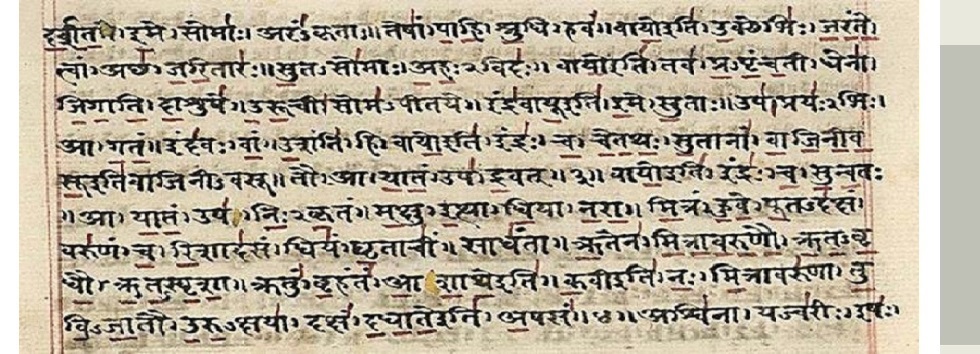 दर्शत। इमे। सोमाः। अरंऽकृताः॥ तेषां। पाहि। श्रुधि। हवं॥ वायो इति। उक्थेभिः। जरंते।
त्वां। अच्छ। जरितारः॥ सुतऽसोमाः। अहःऽविदः॥ वायो इति। तव। प्रऽपृंचती। धेना।
जिगाति। दाशुषे॥ उरूची। सोमऽपीतये॥ इंद्रवायू इति। इमे। सुताः॥ उप। प्रयःऽभिः।
आ। गतं॥ इंदवः। वां। उशंति। हि। वायो इति। इंद्रः। च। चेतथः। सुतानां। वाजिनीव
सू इति वाजिनीऽवसू॥ तौ। आ। यातं। उप। द्रवत्॥ ३॥ वायो इति। इंद्रः। च। सुन्वतः
॥ आ। यातं। उप। निःऽकृतं॥ मक्षु। इत्था। धिया। नरा॥ मित्रं। हुवे। पूतऽदक्षं।
वरुणं। च। रिशादसं। धियं। घृताचीं। साधंता॥ ऋतेन। मित्रावरुणौ। ऋतऽवृ
धौ। ऋतऽस्पृशा॥ क्रतुं। बृहंतं। आ शाथे इति॥ कवी इति। नः। मित्रावरुणा। तु
विऽजातौ। उरुऽक्षया। दक्षं। दधाते इति। अपसं॥ ४॥ अश्विना। यज्वरीः। इषः।